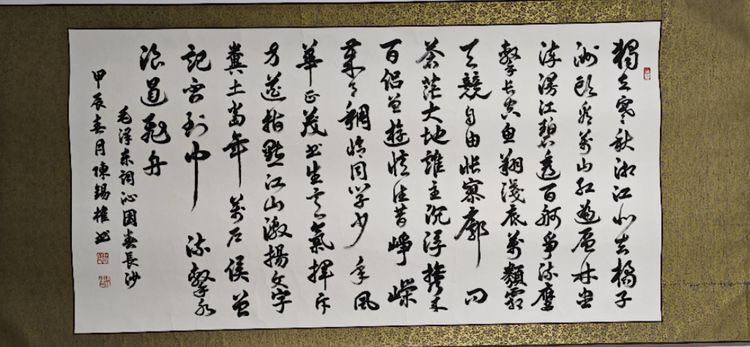 獨立寒秋湘江北去橘子
洲頭看萬山紅遍層林盡
染漫江碧透百舸爭流鷹
擊長空魚翔淺底萬類霜
天競自由悵寥廓問
蒼茫大地誰主沉浮攜來
百侶曾遊憶往昔崢嶸
歲月稠恰同學少年風
華正茂書生意氣揮斥
方遒指點江山激揚文字
糞土當年萬戶侯曾
記否到中流擊水
浪遏飛舟
毛澤东詞沁園春長沙
甲辰春月陳錫權书